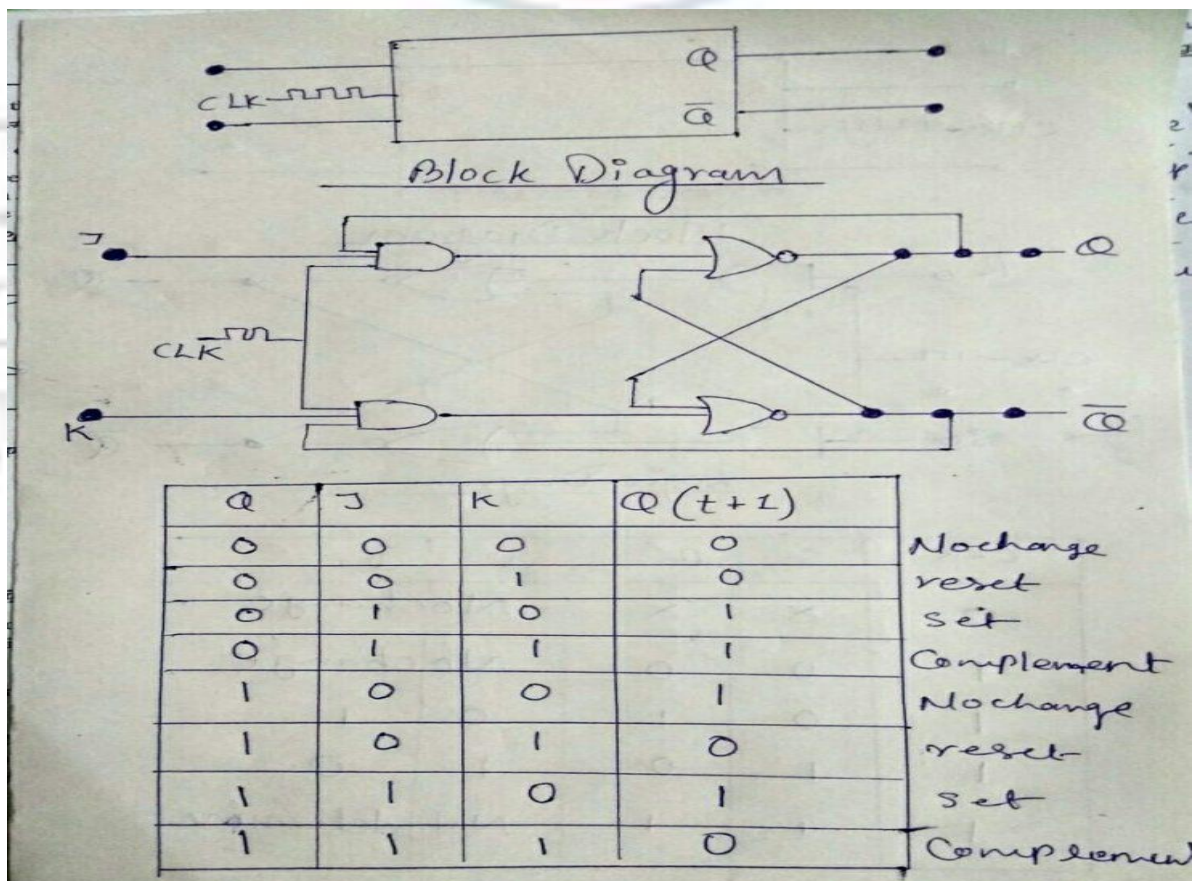 Q
CLK
Q̅
Block Diagram
J
Q
CLK
K
Q̅
Q J K Q(t+1)
0 0 0 0 Nochange
0 0 1 0 reset
0 1 0 1 set
0 1 1 1 Complement
1 0 0 1 Nochange
1 0 1 0 reset
1 1 0 1 set
1 1 1 0 Complemen